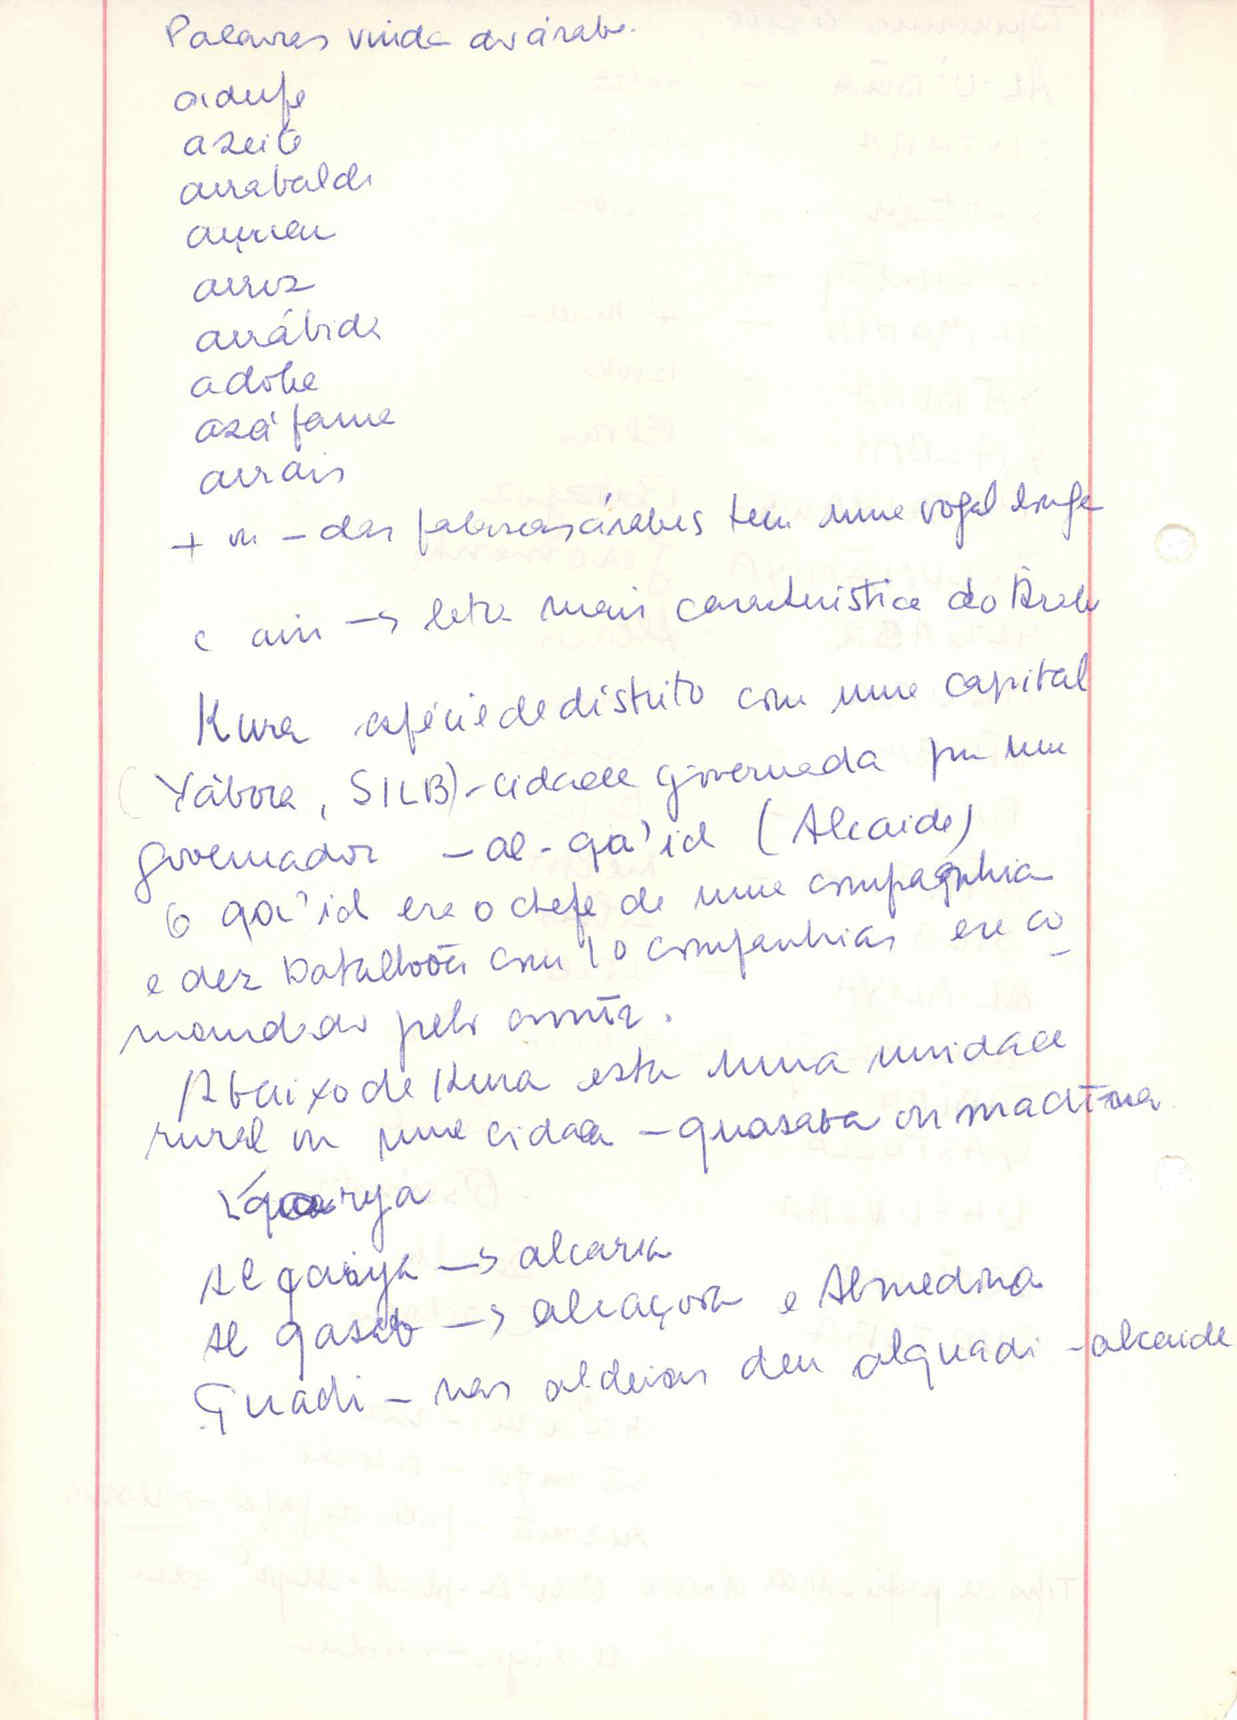 Palavras vinda do árabe.
adufe
azeite
arrabalde
açucar
arroz
arrábida
adobe
azáfama
arrais
+ ou - das palavras árabes tem uma vogal longa
c ain → letra mais caracteristica do Árabe
Kura espécie de distrito com uma capital
(Yábora, SILB) - cidade governada por um
governador - al-qa'id (Alcaide)
O qa'id era o chefe de uma companhia
e dez batalhões com 10 companhias era co
mandado pelo amīr.
Abaixo de Kura esta uma unidade
rural ou uma cidade - quasaba ou madīna
qarya
Al qarya → alcaria
Al qasab → alcaçova e Almedina
Quadi - nas aldeias deu alquadi - alcaide